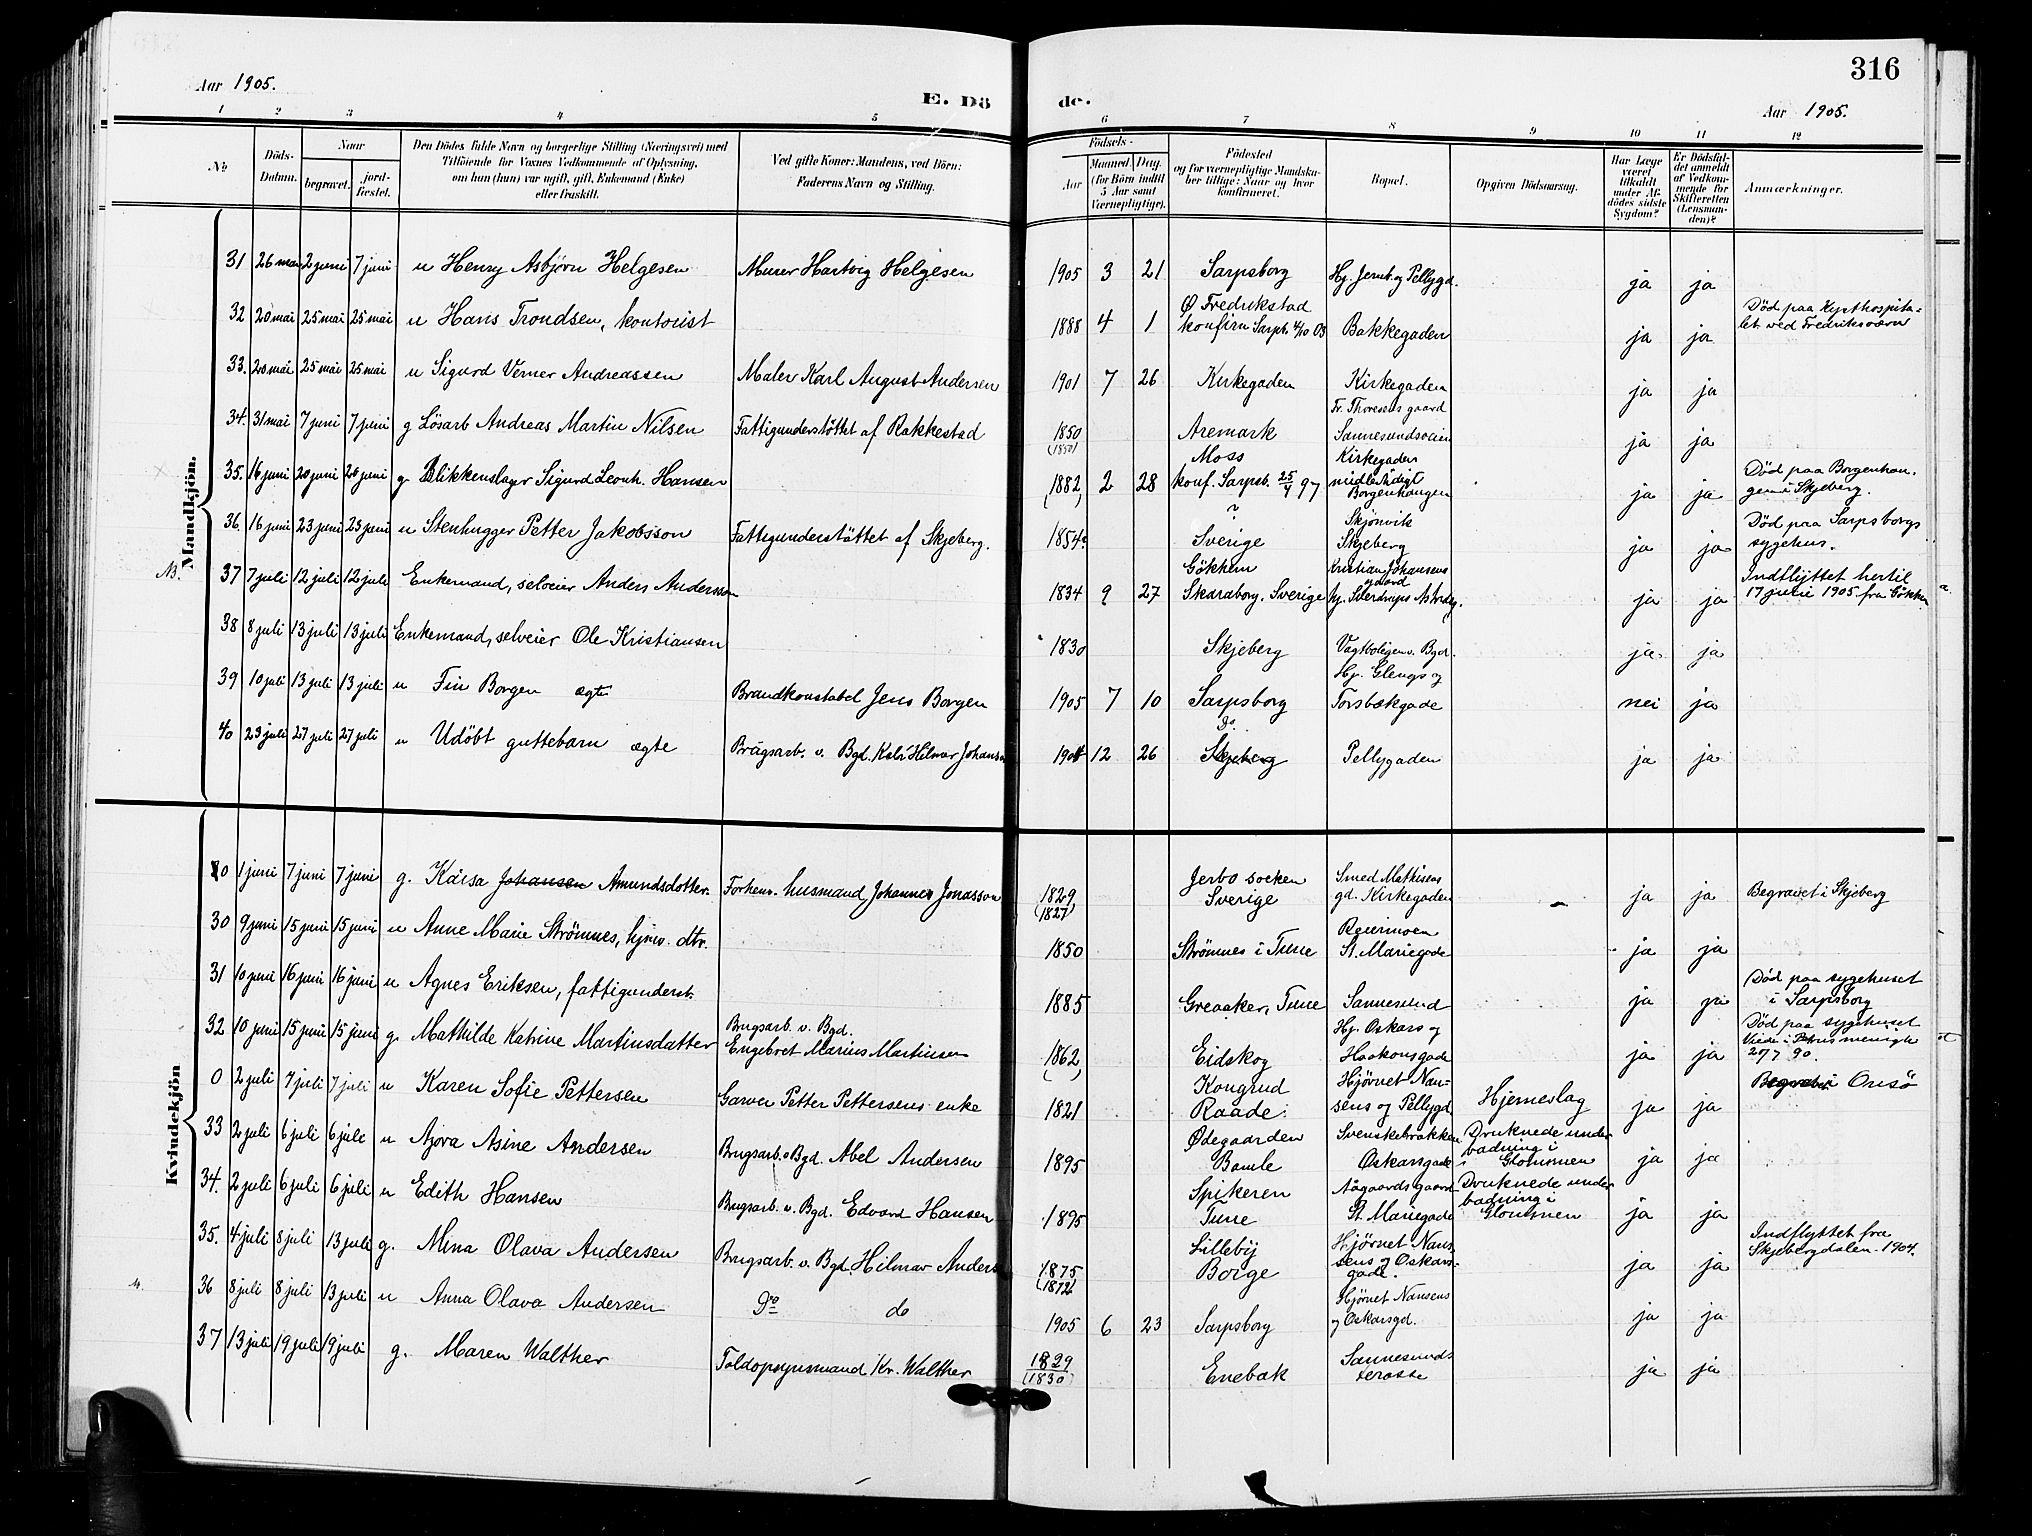 316
Aar 1905.
E. Dö de.
Aar 1905.
1 2 3 4 5 6 7 8 9 10 11 12
No
Döds-Datum.
Naar
begravet. jordfæstet.
Den Dödes fulde Navn og borgerlige Stilling (Næringsvei) med
Tilföiende for Voxnes Vedkommende af Oplysning,
om han (hun) var ugift, gift, Enkemand (Enke)
eller fraskilt.
Ved gifte Koner: Mandens, ved Börn:
Faderens Navn og Stilling.
Födsels-
Aar
Maaned. Dag.
(for Börn indtil
5 Aar samt
Værnepligtige).
Födested
og for værnepligtige Mandska-
ber tillige: Naar og hvor
konfirmeret.
Bopæl.
Opgiven Dödsaarsag.
Har Læge
været
tilkaldt
under Af-
dödes sidste
Sygdom?
Er Dödsfal-
det anmeldt
af Vedkom-
mende for
Skifteretten
(Lensman-
den)?
Anmærkninger.
Mandkjön.
31 26 mai 2 juni 7 juni u Henry Asbjørn Helgesen Murer Hartvig Helgesen 1905 3 21 Sarpsborg Hj. Jernb. og Pellygd. ja ja
32 20 mai 25 mai 25 mai u Hans Trondsen, kontorist 1888 4 1 Ø Fredrikstad
konfirm Sarpb. 4/10 03 Bakkegaden ja ja Død paa Kysthospita-
let ved Fredriksværn
33. 20 mai 25 mai 25 mai u Sigurd Verner Andreassen Maler Karl August Andersen 1901 7 26 Kirkegaden Kirkegaden ja ja
34. 31 mai 7 juni 7 juni g Lösarb Andreas Martin Nilsen Fattigunderstöttet af Rakkestad 1850 Aremark Fr. Thoresens gaard
Sannesundsveien ja ja
35. 14 juni 20 juni 20 juni g Blikkenslager Sigurd Leonh. Hansen 1882 2 28 Moss
konf. Sarpsb. 25/4 97 Kirkegaden
midlertidigt
Borgenhaugen ja ja Død paa Borgenhau-
gen i Skjeberg.
36. 16 juni 23 juni 23 juni u Stenhugger Petter Jakobsson Fattigunderstöttet af Skjeberg. 1854? ?
Sverige Skjønvik
Skjeberg ja ja Död paa Sarpsborgs
sygehus.
37 7 juli 12 juli 12 juli Enkemand, selveier Anders Andersson 1834 9 27 Gökhem
Skaraborg. Sverige Kristian Johansens
gaard
hj. Sverdrups ja ja Indflyttet hertil
17 juni 1905 fra Gökhem
38 8 juli 13 juli 13 juli Enkemand, selveier Ole Kristiansen 1830 Skjeberg Vagtboligen v. Bgd. ja ja
39 10 juli 13 juli 13 juli u Fin Borgen ægte Brandkonstabel Jens Borgen 1905 7 10 Sarpsborg Hj. Glengs og
Torsbækgade nei ja
40 23 juli 27 juli 27 juli u Udöbt guttebarn ægte Brugsarb. v. Bgd. Karl Hilmar Johansen 1904 12 26 Do
Skjeberg Pellygaden ja ja
Kvindekjön
0 1 juni 7 juni 7 juni g. Kaisa Johansen Amundsdotter. Forhenv. husmand Johannes Jonasson 1829
(1827) Jerbo socken
Sverige Smed Mathisens
gd. Kirkegaden ja ja Begravet i Skjeberg
30 9 juni 15 juni 15 juni u Anne Marie Strömnes, hjmv. dtr. 1850 Strömnes i Tune Reiermoen
St. Mariegade ja ja
31 10 juni 16 juni 16 juni u Agnes Eriksen, fattigunderst. 1885 Greaaker, Tune Sannesund ja ja Død paa sygehuset
i Sarpsborg
32 10 juni 15 juni 15 juni g. Mathilde Katrine Martinsdatter Brugsarb. v. Bgd.
Engebret Marius Martinsen 1862 Eidskog Hj. Oskars og
Haakonsgade ja ja Død paa sygehuset
Viede i Petrus menigh
20/7 90.
0 2 juli 7 juli 7 juli u Karen Sofie Pettersen Garver Petter Pettersens enke 1821 Kongrud
Raade. Hjørnet Nan-
sens og Pellygd Hjerneslag ja ja Begravet i Onsö
33 2 juli 6 juli 6 juli u Ajova Asine Andersen Brugsarb. v Bgd. Abel Andersen 1895 Ødegaarden
Bamle Svenskebrakken
Oskarsgade Druknede under
badning i
Glommen ja ja
34. 2 juli 6 juli 6 juli u Edith Hansen Brugsarb. v. Bgd. Edvard Hansen 1895 Spikeren
Tune Aagaards gaard
St. Mariegade Druknede under
badning i
Glommen ja ja
35. 4 juli 8 juli 13 juli g. Mina Olava Andersen Brugsarb. v. Bgd. Hilmar Anders 1875
(1872) Lilleby
Borge Hjørnet Nan-
sens og Oskars-
gade. ja ja Indflyttet fra
Skjebergdalen. 1904.
36 8 juli 8 juli 13 juli u Anna Olava Andersen Do do 1905 6 23 Sarpsborg Hjørnet Nansens
og Oskarsgd. ja ja
37 13 juli 19 juli 19 juli g. Maren Walther Toldopsynsmand Kr. Walther 1829
(1830) Enebak Sannesunds
terasse ja ja